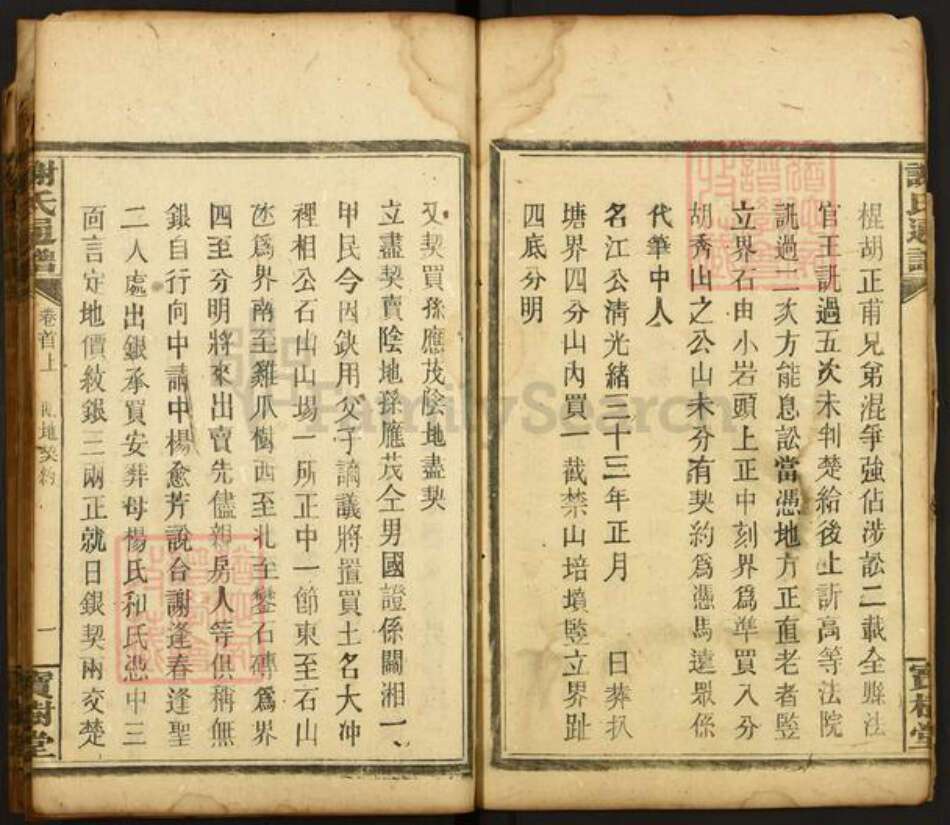 棍胡正甫兄弟混爭強佔涉訟二載全縣法
官王訊過五次未判楚給後上訴高等法院
訊過二次方能息訟當憑地方正直老者豎
立界石由小岩頭上正中刻界爲準買入分
胡秀山之公山未分有契約爲憑馬達眾係
代筆中人
名江公淸光緒三十三年正月　日葬扒
塘界四分山內買一截禁山培墳豎立界趾
四底分明
謝氏通譜
寶樹堂
又契買孫應茂陰地盡契
立盡契賣陰地孫應茂仝男國證係關湘一、
甲民今因缺用父子謫議將置買土名大沖
裡相公石山山塲一所正中一節東至石山
氹爲界南至雞爪樹西至北至鏨石磚爲界
四至分明將來出賣先儘親房人等俱稱無
銀自行向中請中楊愈芳說台謝逢春逢聖
二人處出銀承買安葬母楊氏和氏憑中三
面言定地價紋銀三兩正就日銀契兩交楚
謝氏通譜
卷首上
契約
一
寶樹堂
FamilySearch